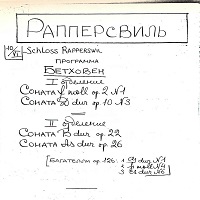 РАППЕРСВИЛЬ
10/XI Schloss Rapperswil
ПРОГРАММА
БЕТХОВЕН
I отделение
СОНАТА f moll op. 2 N1
СОНАТА D dur op. 10 N3
II отделение
СОНАТА B dur op. 22
СОНАТА As dur op. 26
[БАГАТЕЛИ op 126: 1 G dur N1
2 h moll N4
3 Es dur N6